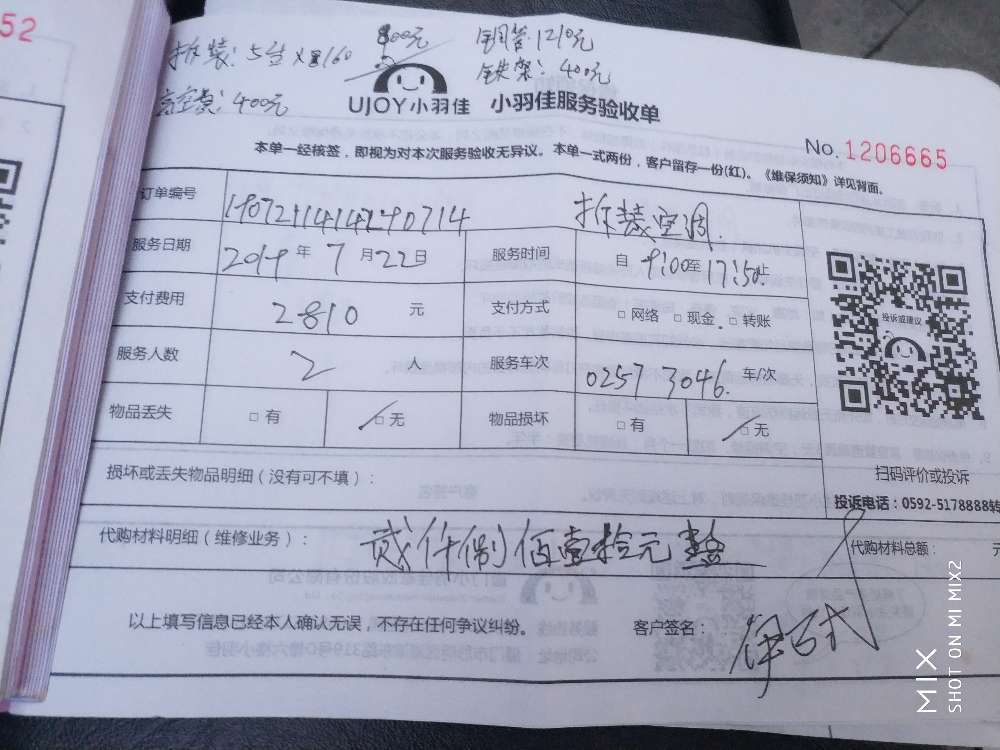 52
拆装:5台×160 800元
钢管:1210元
铁架:400元
高空费:400元
UJOY小羽佳 小羽佳服务验收单
No.1206665
本单一经核签,即视为对本次服务验收无异议。本单一式两份,客户留存一份(红)。《维保须知》详见背面。
订单编号 拆装空调.
服务日期 2019年7月22日 服务时间 自9:00至17:50止
支付费用 2810 元 支付方式 □网络 □现金 □转账
服务人数 2 人 服务车次 0257 3046. 车/次
物品丢失 □有 □无 物品损坏 □有 □无
投诉或建议
扫码评价或投诉
投诉电话:0592-5178888转
损坏或丢失物品明细(没有可不填):
代购材料明细(维修业务): 佰壹拾元整 代购材料总额: 元
以上填写信息已经本人确认无误,不存在任何争议纠纷。 客户签名:
MIX
SHOT ON MI MIX2